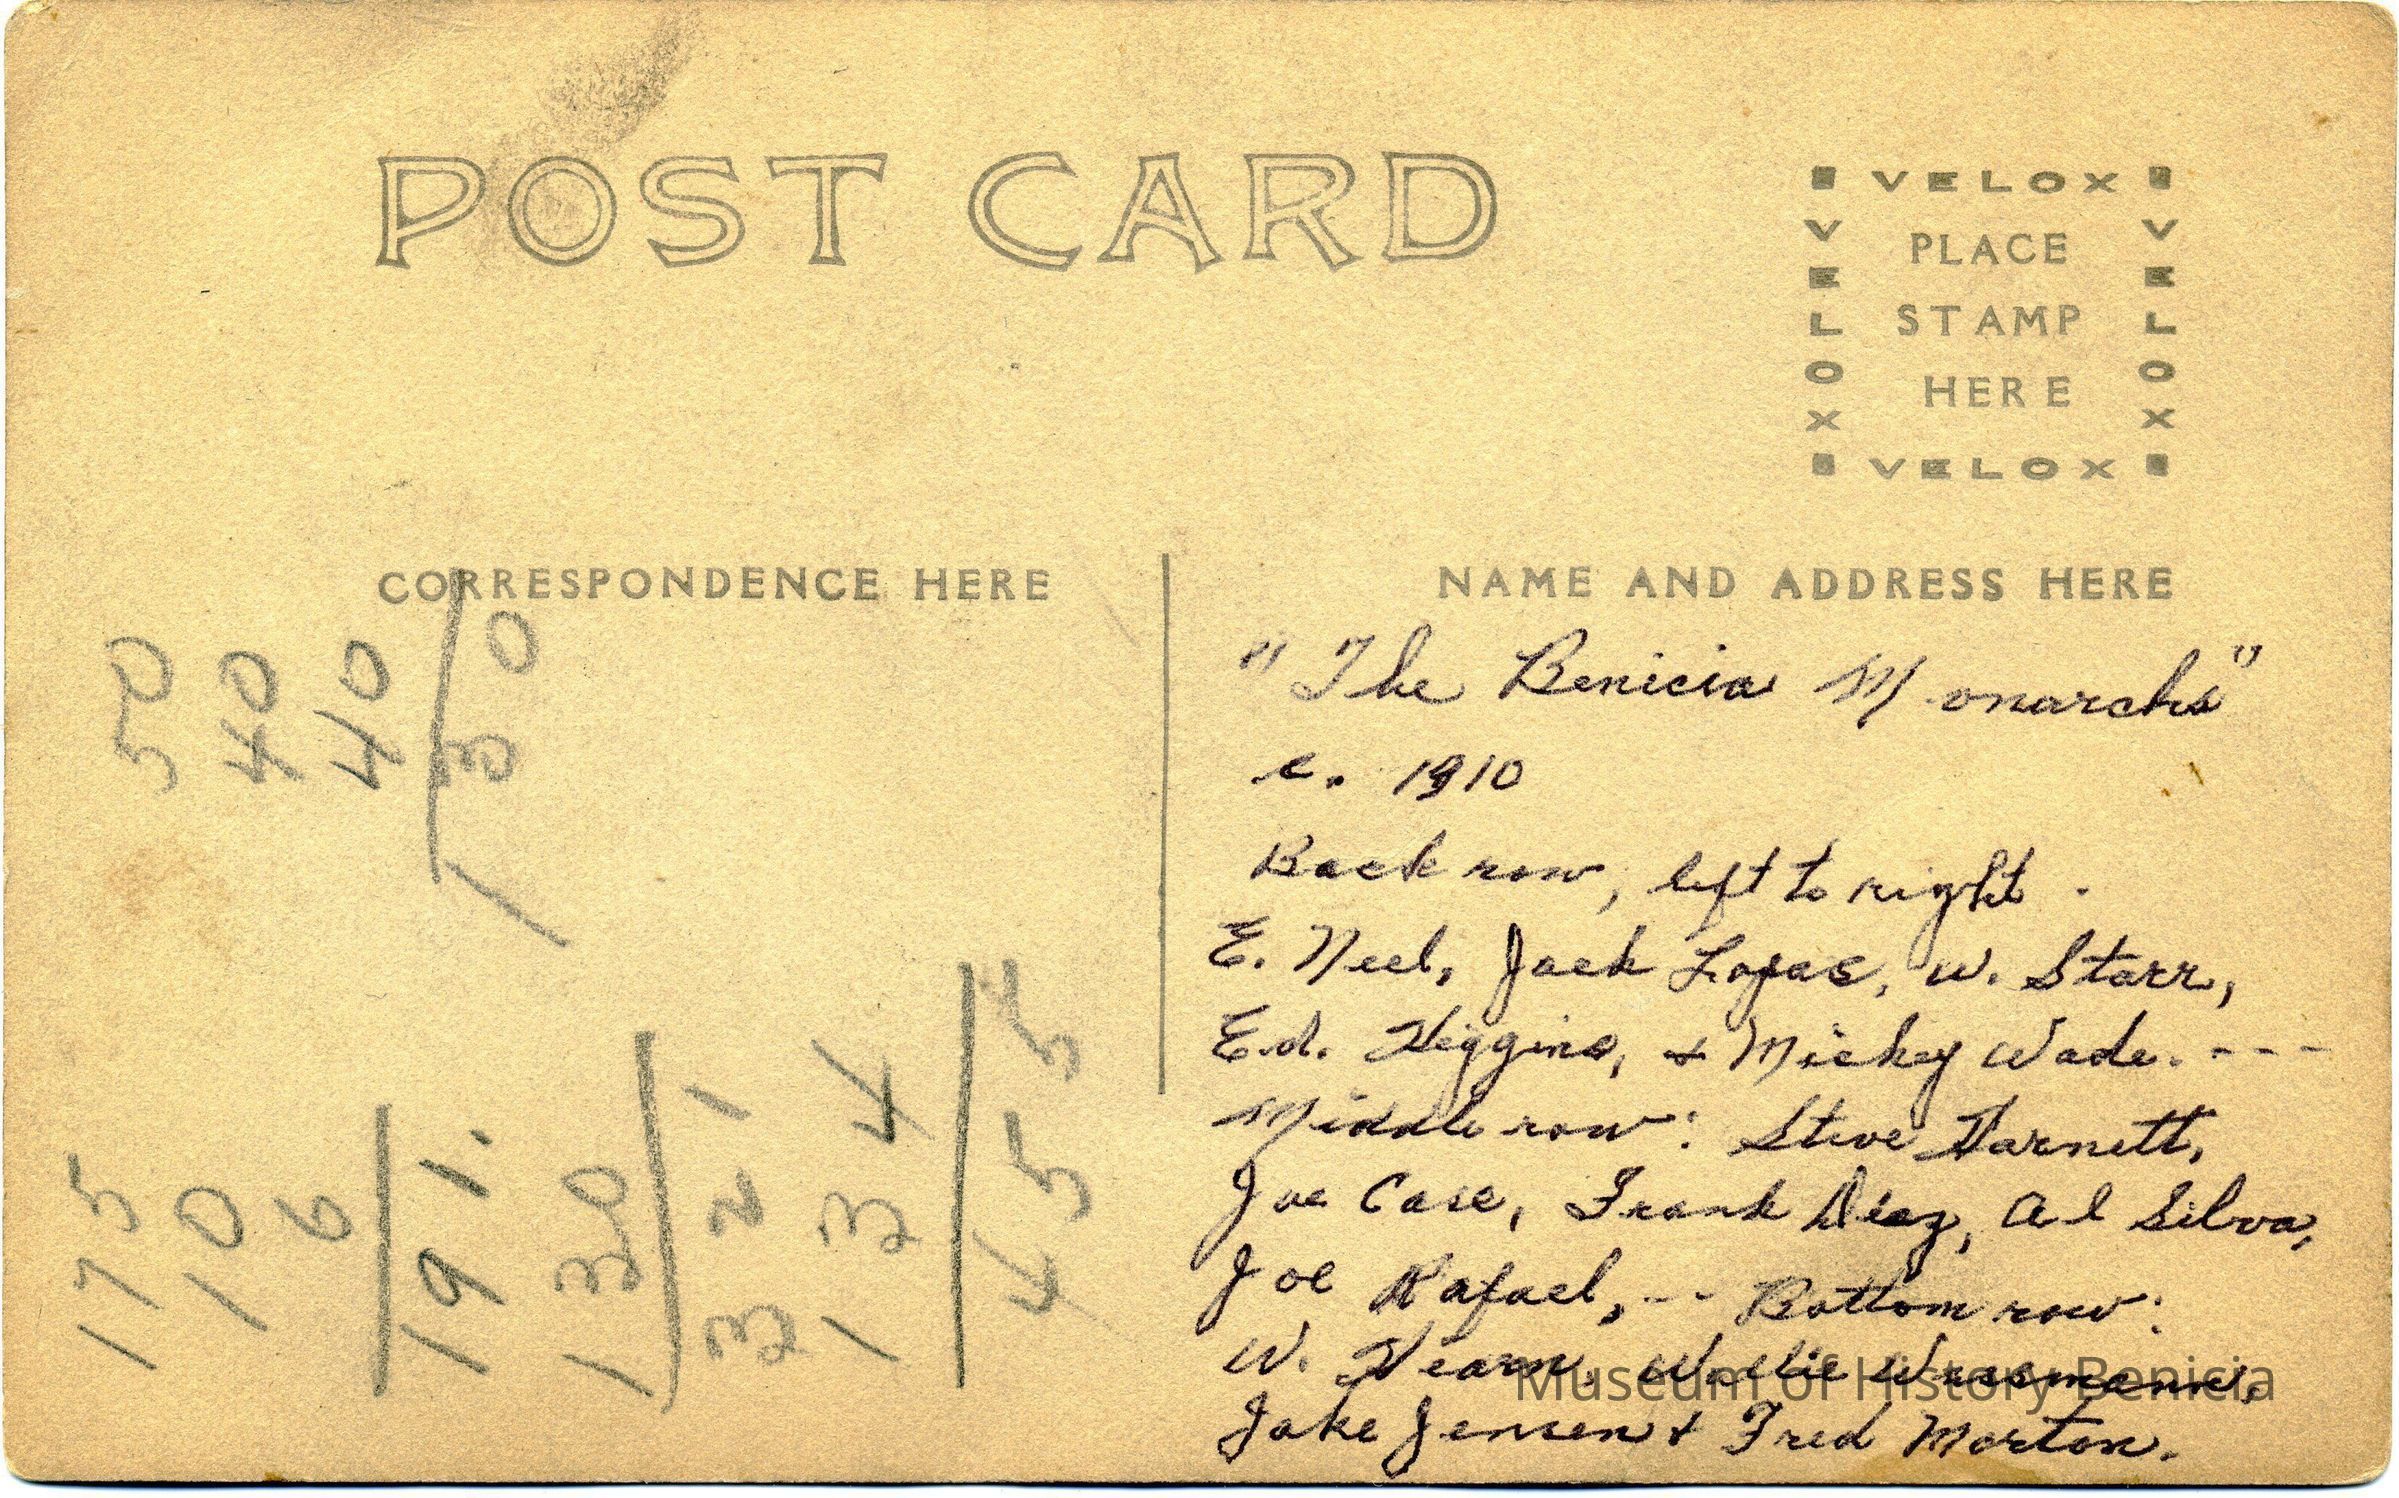 POST CARD
VELOX
VELOX
VELOX
VELOX
PLACE
STAMP
HERE
CORRESPONDENCE HERE
NAME AND ADDRESS HERE
50
40
40
130
175
10
6
191.
130
321
134
455
"The Benicia Monarchs"
c. 1910
Back row, left to right.
E. Neel, Jack Lopas, W. Starr,
Ed. Higgins, & Mickey Wade. ---
Middle row: Steve Harnett,
Joe Case, Frank Diaz, Al Silva,
Joe Rafael, -- Bottom row:
W. Hearn, Wallie Wassmann,
Jake Jensen & Fred Morton.
Museum of History Benicia